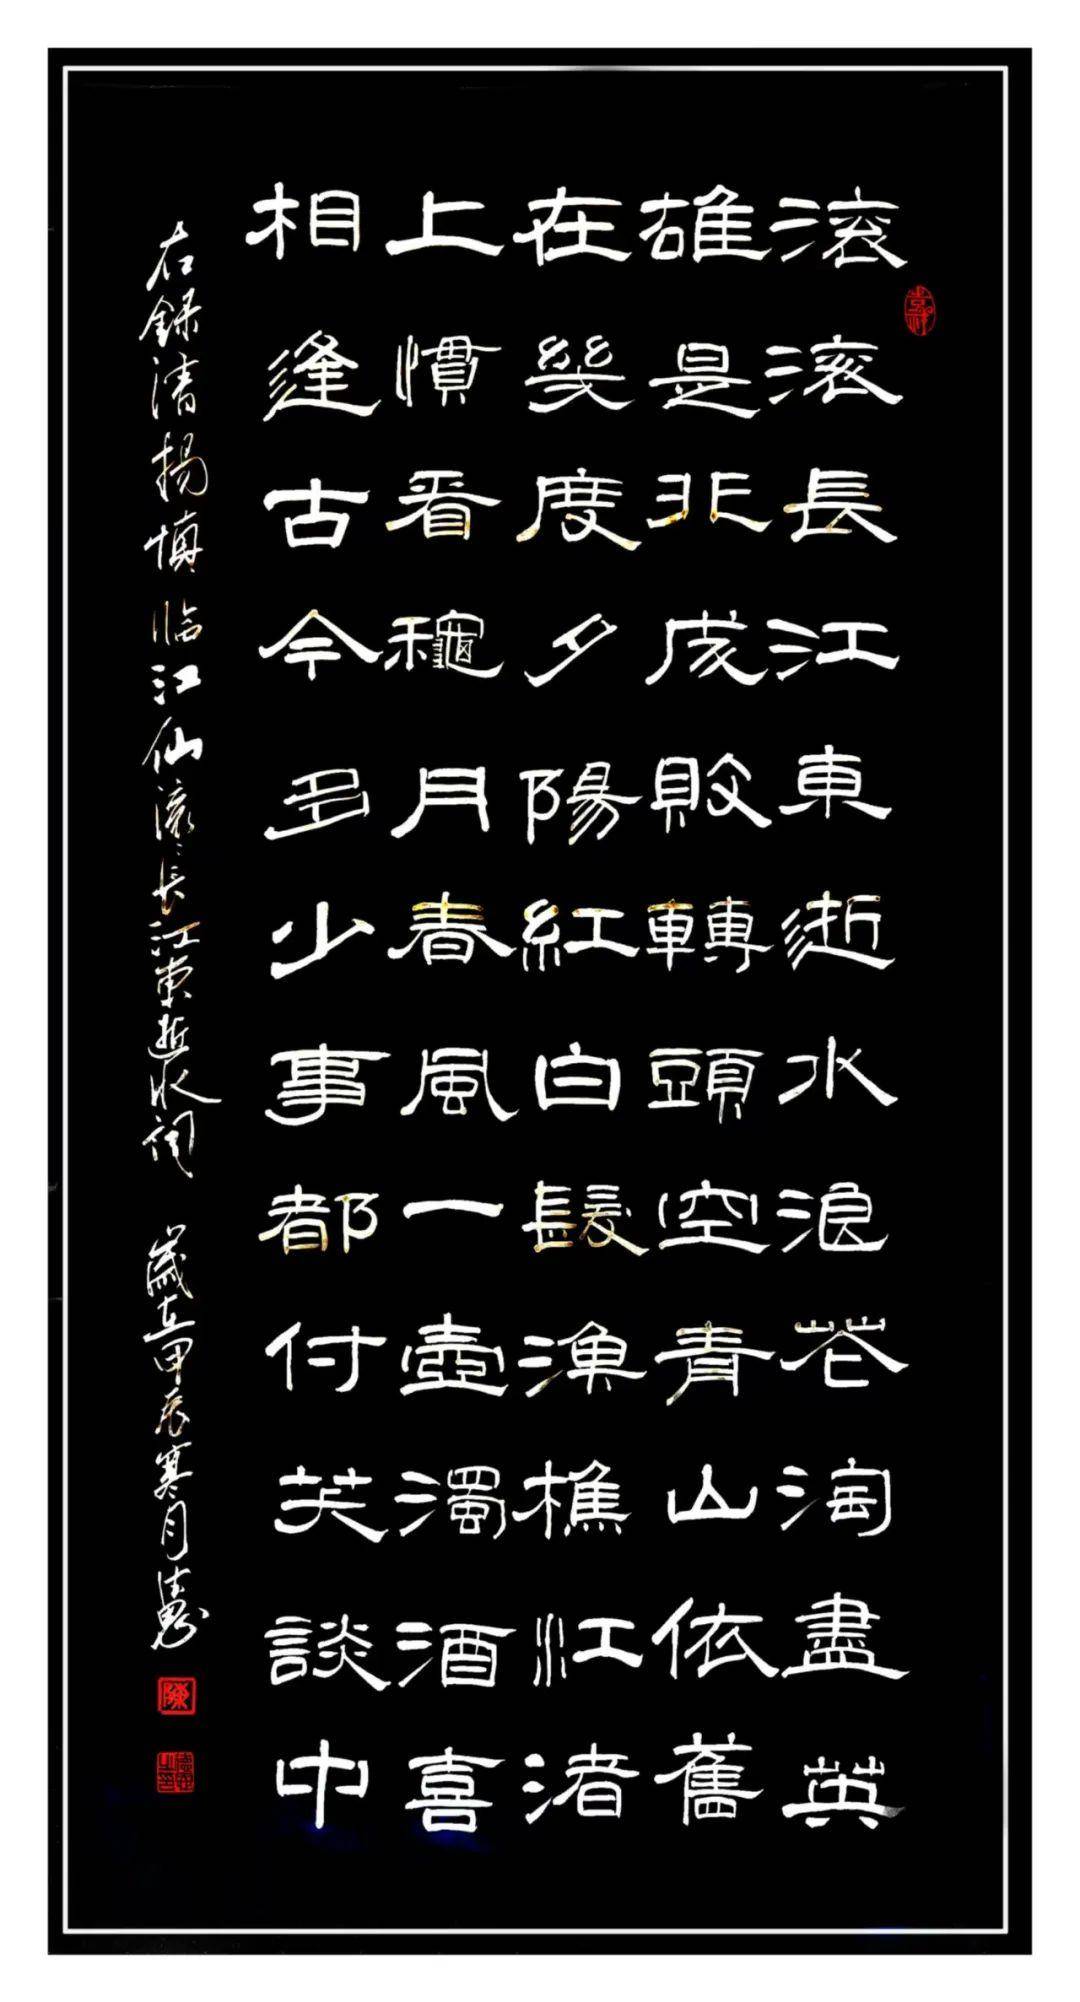 滚滚長江東逝水浪花淘盡英
雄是非成敗轉頭空青山依舊
在幾度夕陽紅白髮漁樵江渚
上慣看龝月春風一壺濁酒喜
相逢古今多少事都付笑談中
右録清楊慎临江仙滚〻長江東逝水詞 歲在甲辰寒月
陳